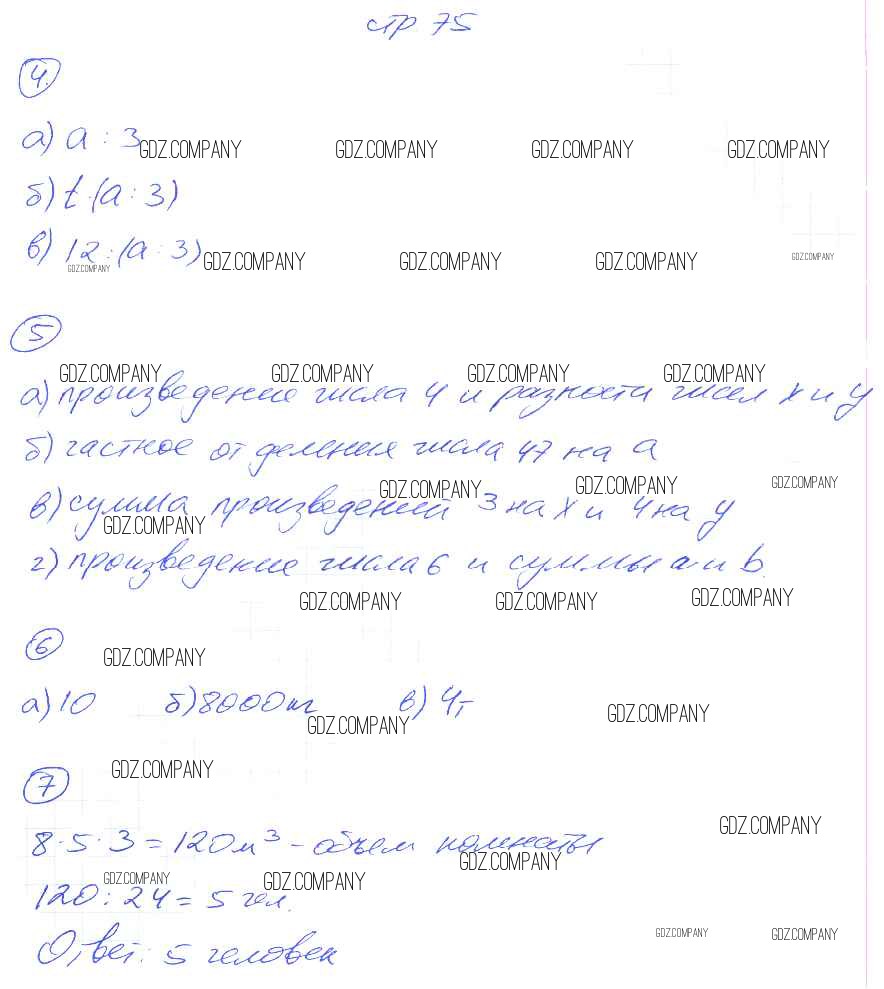 стр 75
4.
а) a : 3
GDZ.COMPANY GDZ.COMPANY GDZ.COMPANY GDZ.COMPANY
б) t·(a : 3)
в) 12 : (a : 3)
GDZ.COMPANY GDZ.COMPANY GDZ.COMPANY GDZ.COMPANY GDZ.COMPANY
5
GDZ.COMPANY GDZ.COMPANY GDZ.COMPANY GDZ.COMPANY
а) произведение числа 4 и разности чисел x и y
б) частное от деления числа 47 на a
GDZ.COMPANY GDZ.COMPANY GDZ.COMPANY
в) сумма произведений 3 на x и 4 на y
GDZ.COMPANY
г) произведение числа 6 и суммы a и b.
GDZ.COMPANY GDZ.COMPANY GDZ.COMPANY
6
GDZ.COMPANY
а) 10 б) 8000 кг в) 4т
GDZ.COMPANY GDZ.COMPANY
GDZ.COMPANY
7
GDZ.COMPANY
8·5·3=120м³ – объем комнаты
GDZ.COMPANY
GDZ.COMPANY GDZ.COMPANY
120 : 24 = 5 чел.
Ответ: 5 человек
GDZ.COMPANY GDZ.COMPANY